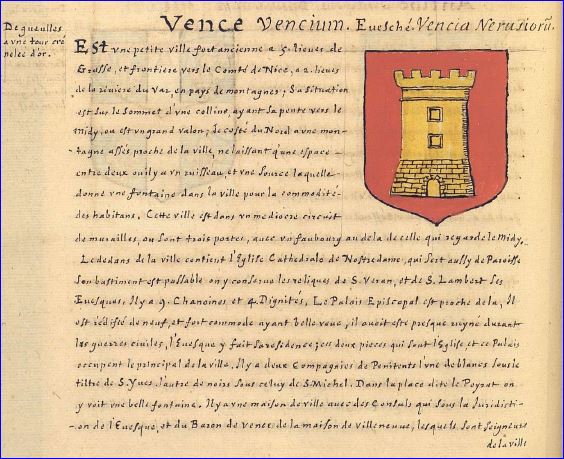 De gueulles
a vne tour cré
nelée d'or.
Vence Vencium. Euesché. Vencia Nerusiorũ.
Est vne petite ville fort ancienne a 3. lieues de
Grasse, et frontiere vers le Comté de Nice, a 2. lieues
de la riuiere du Var, en pays de montagnes; Sa situation
est sur le sommet d'vne colline, ayant sa pente vers le
midy, ou est vn grand valon; Le costé du Nord a vne mon-
-tagne assés proche de la ville, ne laissant qu'une espace
entre deux ou il y a vn ruisseau, et vne source laquelle
donne vne fontaine dans la ville pour la commodité
des habitans. Cette ville est dans vn mediocre circuit
de murailles, ou sont trois portes, auec vn faubourg au dela de celle qui regarde le Midy.
Le dedans de la ville contient l'Eglise Cathedrale de Nostredame, qui sert aussy de Paroisse
Son bastiment est passable on y conserue les reliques de S. Veran, et de S. Lambert ses
Euesques. Il y a 9. Chanoines et 4. Dignités. Le Palais Episcopal est proche de la, Il
est rédifié de neuf, et fort commode ayant belle veue, il auoit esté presque ruyné durant
les guerres ciuiles, l'Euesque y fait sa residence; ces deux pieces qui sont l'Eglise, et ce Palais
occupent le principal de la ville. Il y a deux Compagnies de Penitents l'vne de blancs sous le
tiltre de S. Yues l'autre de noirs sous celuy de S. Michel. Dans la place dite le Peyrat on
y voit vne belle fontaine. Il y a vne maison de ville auec des Consuls qui sous la Juridicti-
-on de l'Euesque, et du Baron de Vence de la maison de Villeneuue, lesquels sont seigneurs
de la ville